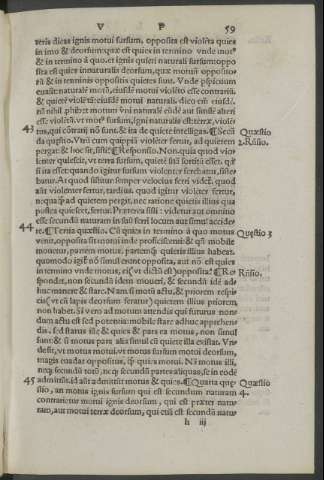 V P 59
teris dicas ignis motui sursum, opposita est violẽta quies
in imo & deorsum: quæ est quies in termino vnde motꝰ
& in termino à quo. et ignis quieti naturali sursum: oppo
sita est quies innaturalis deorsum, quæ motuũ oppositio
nẽ & in terminis oppositis quietes sunt. Vnde
euasit: naturalẽ motũ, eiusdẽ motui violẽto esse contrariũ.
& quietẽ violẽtã: eiusdẽ motui naturali. dico em̃ eiusdẽ.
nã nihil phibet motum vni naturalẽ eũdẽ aut similẽ alteri
esse violẽtũ. vt motꝰ sursum, igni naturalis est: terræ, violẽ
43 tus, qui cõtrarij nõ sunt. & ita de quiete intelligas. ¶Secũ Quæstio
da quæstio. Vtrũ cum quippiã violẽter fertur, ad quietem 2. Rñsio.
pergat: & hoc sit, sisti? ¶Responsio. Non. quia quod vio-
lenter quiescit, vt terra sursum, quietẽ suã sortitũ esset. qͥ
si ita esset: quando igitur sursum violenter ferebatur, sistebatur. At quod sistitur semper velocius ferri videt̃. quod
aũt violenter fertur, tardius. quod igitur violẽter fertur,
nequaq̃ ad quietem pergit. nec ratione quietis illius qua
postea quiescet, fertur. Præterea sisti: videtur aut omnino
esse secundũ naturam in suũ ferri locum aut simul accide-
44 re. ¶Tertia quæstio. Cũ quies in termino à quo motus Quęstio 3
venit, opposita sit motui inde proficiscenti: & qñ mobile
mouetur, partem motus, partemq̃ quietis illius habeat.
quomodo igit̃ nõ simul erunt opposita, aut nõ est quies
in termino vnde motus, ei (vt dictũ est) opposita? ¶Res Rñsio.
spondet, non secundũ idem moueri, & secundũ idẽ ad-
huc manere & stare. Nam si motũ actu, & priorem respi-
cis (vt cũ lapis deorsum feratur) quietem illius priorem,
non habet. Si vero ad motum attendis qui futurus non-
dum actu est sed potentia: mobile stare adhuc apprehen
dis. sed status ille & quies & pars ea motus, non simul
sunt: & si motus pars alia simul cũ quiete illa existat. Vn-
desit, vt motus motui. vt motus sursum motui deorsum,
magis euadat oppositus, q̃ quies motui. Nã motus illi,
neq; secundũ totũ, neq; secundũ partes aliquas, se in eodẽ
45 admittũt. id aũt admittit motus & quies. ¶Quarta quę- Quæstio
stio, an motus ignis sursum qui est secundum naturam 4.
contrarietur motui ignis deorsum, qui est præter natu-
ram, aut motui terræ deorsum, qui etiã est secundũ natu-
h iij